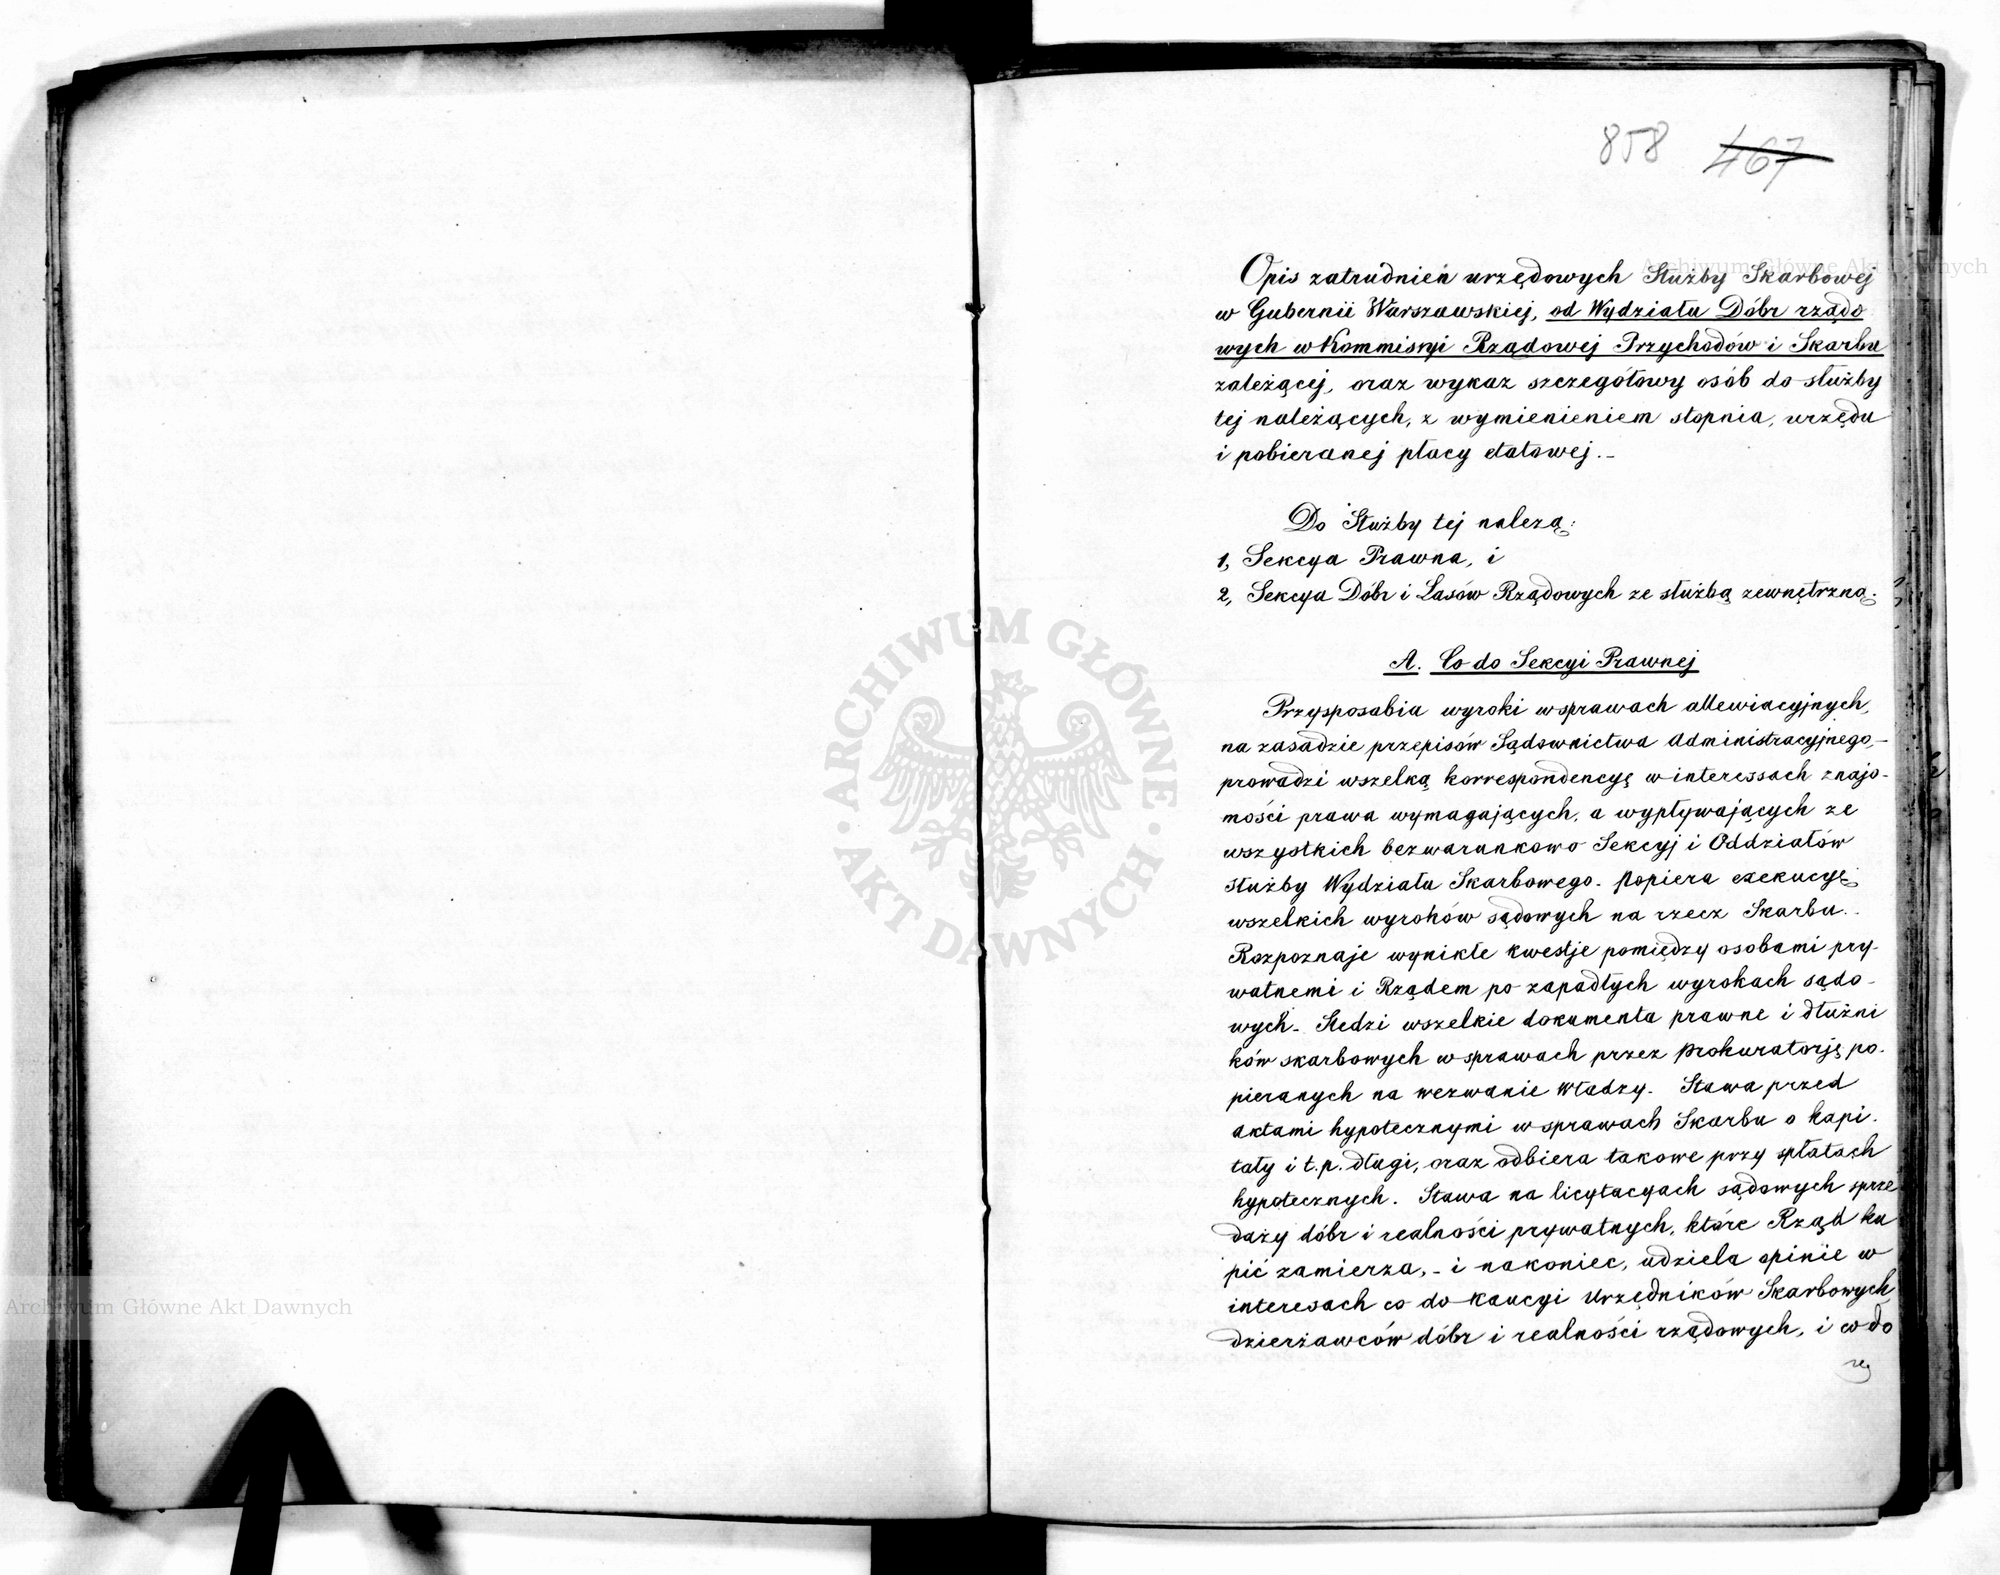 858 467
Opis zatrudnień urzędowych Służby Skarbowej
w Gubernii Warszawskiej, od Wydziału Dóbr rządo
wych w Kommisyi Rządowej Przychodów i Skarbu
zależącej, oraz wykaz szczegółowy osób do służby
tej należących, z wymienieniem stopnia, urzędu
i pobieranej płacy etatowej.-
Do Służby tej należą:
1, Sekcya Prawna, i
2, Sekcya Dóbr i Lasów Rządowych ze służbą zewnętrzną.
A. Co do Sekcyi Prawnej
Przysposabia wyroki w sprawach allewiacyjnych,
na zasadzie przepisów Sądownictwa Administracyjnego,-
prowadzi wszelką korrespondencyę w interessach znajo-
mości prawa wymagających, a wypływających ze
wszystkich bezwarunkowo Sekcyj i Oddziałów
służby Wydziału Skarbowego. Popiera exekucyę
wszelkich wyroków sądowych na rzecz Skarbu.
Rozpoznaje wynikłe kwestje pomiędzy osobami pry-
watnemi i Rządem po zapadłych wyrokach sądo-
wych. Śledzi wszelkie dokumenta prawne i dłużni
ków skarbowych w sprawach przez Prokuratorję po-
pieranych na wezwanie Władzy. Stawa przed
aktami hypotecznymi w sprawach Skarbu o kapi-
tały i t.p. długi, oraz odbiera takowe przy spłatach
hypotecznych. Stawa na licytacyach sądowych sprze
daży dóbr i realności prywatnych, które Rząd ku
pić zamierza,- i nakoniec, udziela opinie w
interesach co do kaucyi Urzędników Skarbowych
dzierżawców dóbr i realności rządowych, i co do
Archiwum Główne Akt Dawnych
ARCHIWUM GŁÓWNE
AKT DAWNYCH
Archiwum Główne Akt Dawnych